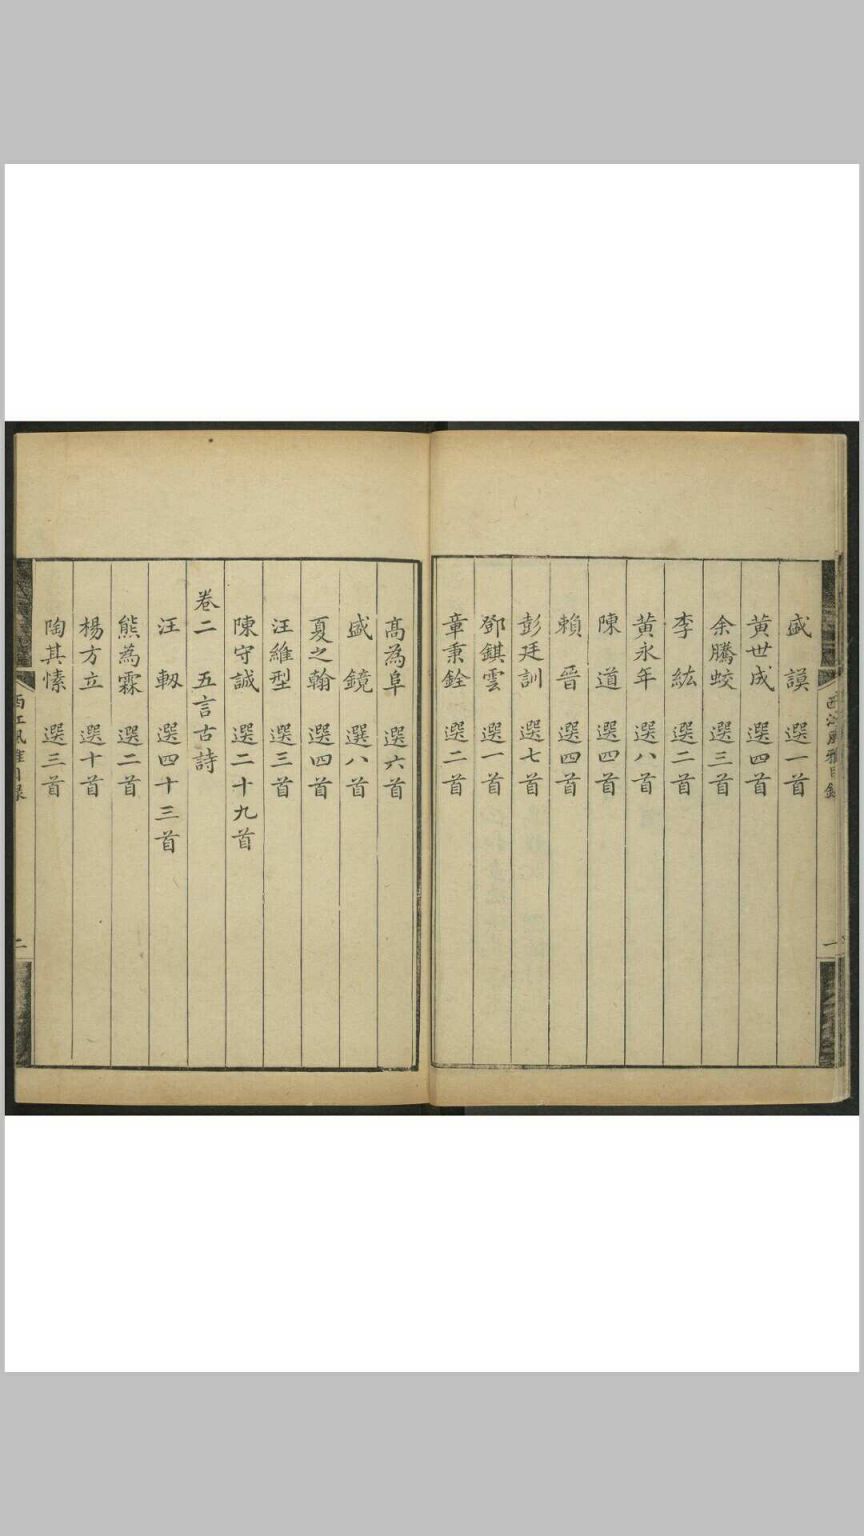 西江風雅目錄
一
盛謨 選一首
黃世成 選四首
余騰蛟 選三首
李紘 選二首
黃永年 選八首
陳道 選四首
賴晉 選四首
彭廷訓 選七首
鄧錤雲 選一首
章秉銓 選二首
高為阜 選六首
盛鏡 選八首
夏之翰 選四首
汪維型 選三首
陳守誠 選二十九首
卷二 五言古詩
汪軔 選四十三首
熊為霖 選二首
楊方立 選十首
陶其愫 選三首
西江風雅目錄
二